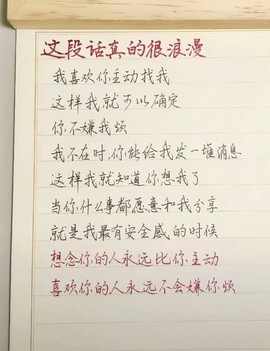 这段话真的很浪漫
我喜欢你主动找我
这样我就可以确定
你不嫌我烦
我不在时,你能给我发一堆消息
这样我就知道你想我了
当你什么事都愿意和我分享
就是我最有安全感的时候
想念你的人永远比你主动
喜欢你的人永远不会嫌你烦